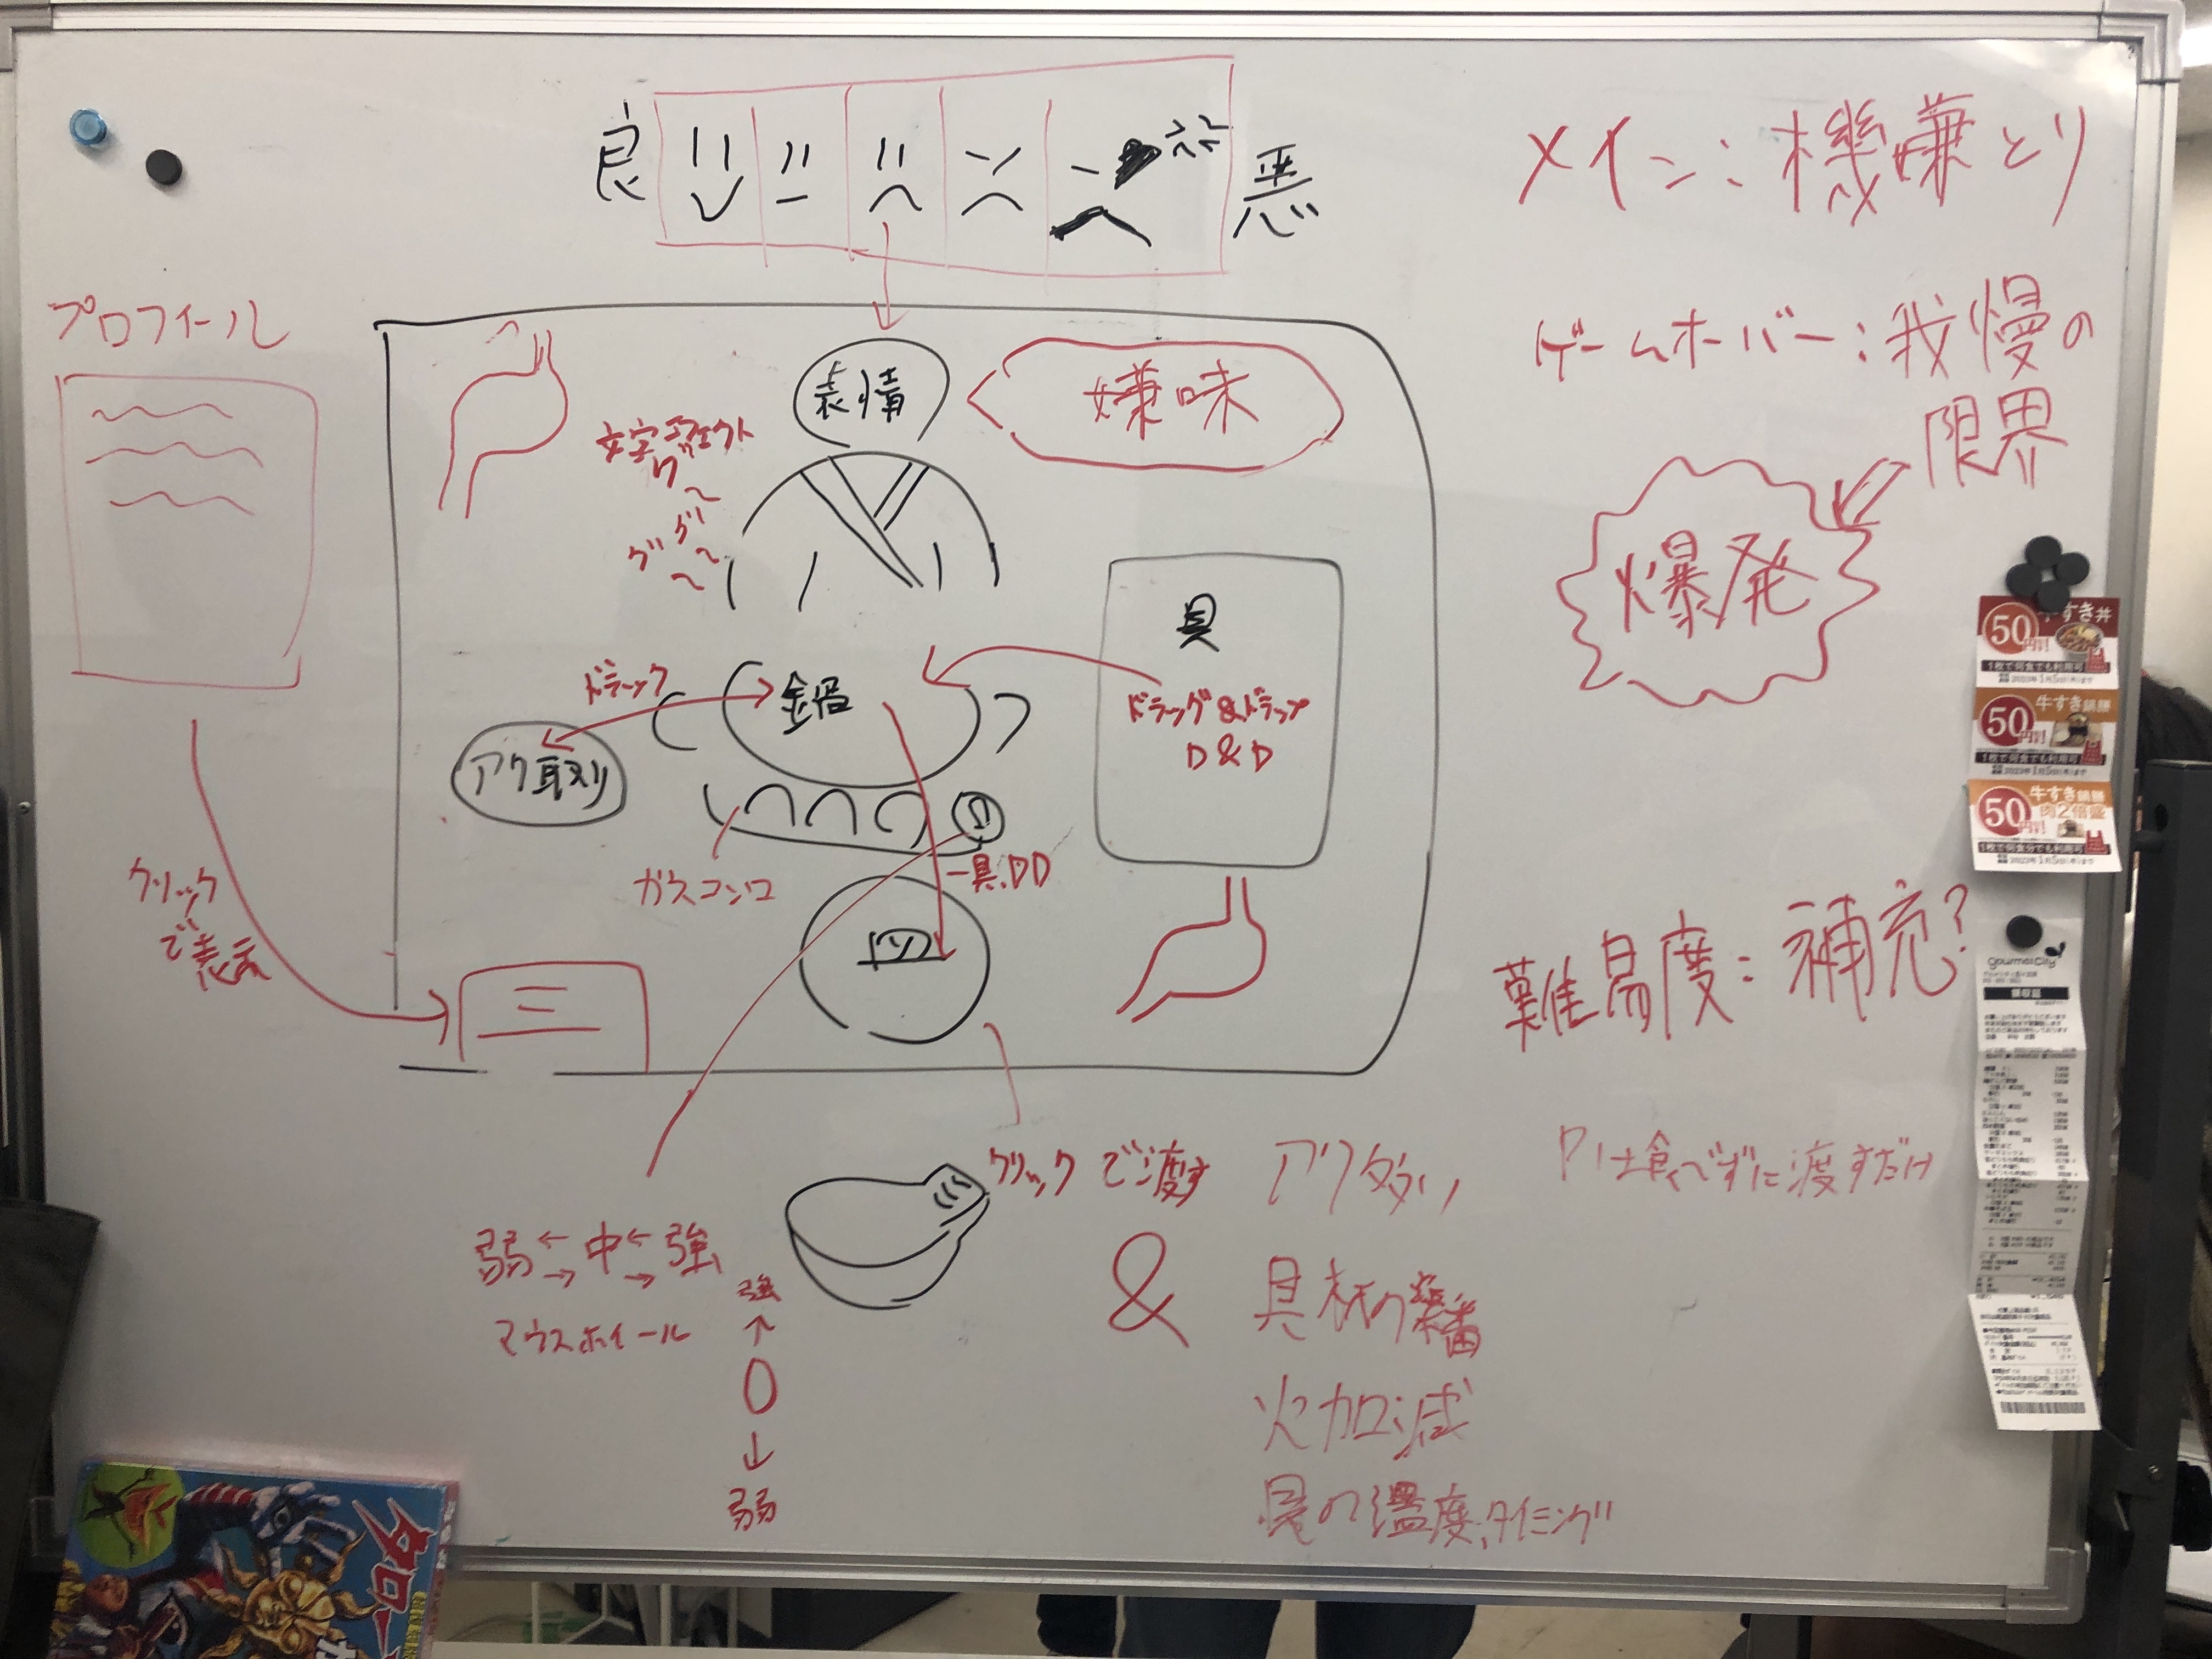 良
悪
メイン:機嫌とり
プロフィール
ゲームオーバー:我慢の
限界
表情
嫌味
文字エフェクト
グ〜
グ〜
グ〜
爆発
具
ドラッグ&ドラップ
D&D
ドラック
鍋
アク取り
ガスコンロ
一具,DD
皿
クリック
で表示
難易度:補充?
クリックで渡す
アク多い
Pは食べずに渡すだけ
弱 ← 中 ← 強
→ →
マウスホイール
強
↑
0
↓
弱
&
具材の順番
火加減
具の温度,タイミング
50円割引
牛すき丼
1枚で何食でも利用可
50円割引
牛すき鍋膳
1枚で何食でも利用可
2023年1月5日(木)まで
50円割引
牛すき鍋膳
肉2倍盛
1枚で何食分でも利用可
2023年1月5日(木)まで
gourmet City
領収証
タロー